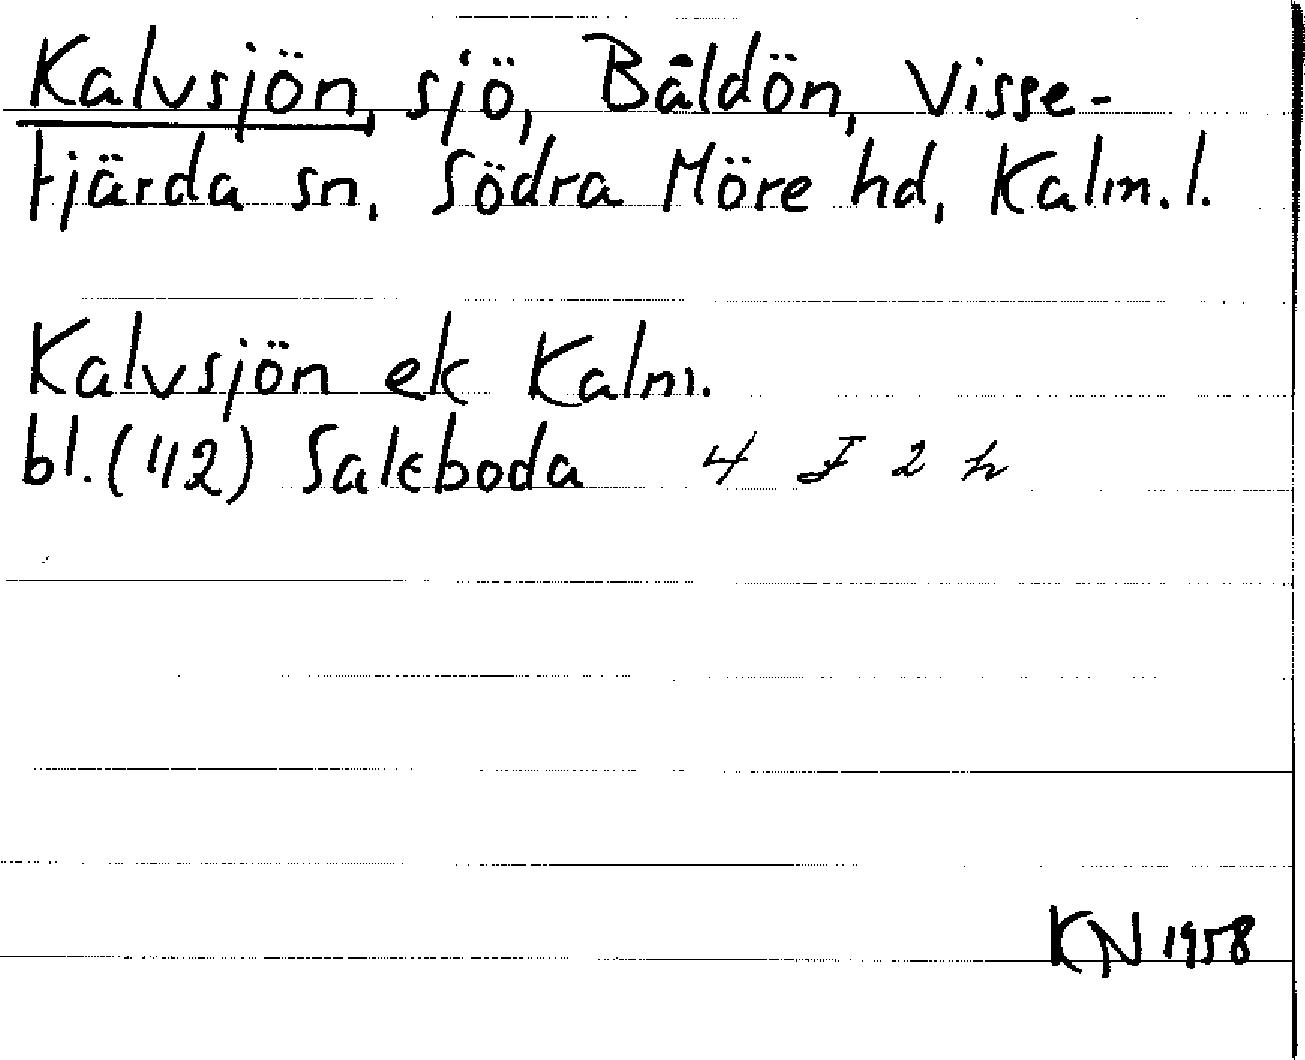 Kalvsjön, sjö, Båldön, Visse-
fjärda sn, Södra Möre hd, Kalm. l.
Kalvsjön ek Kalm.
bl. ("12) Saleboda 4 F 2 h
KN 1958